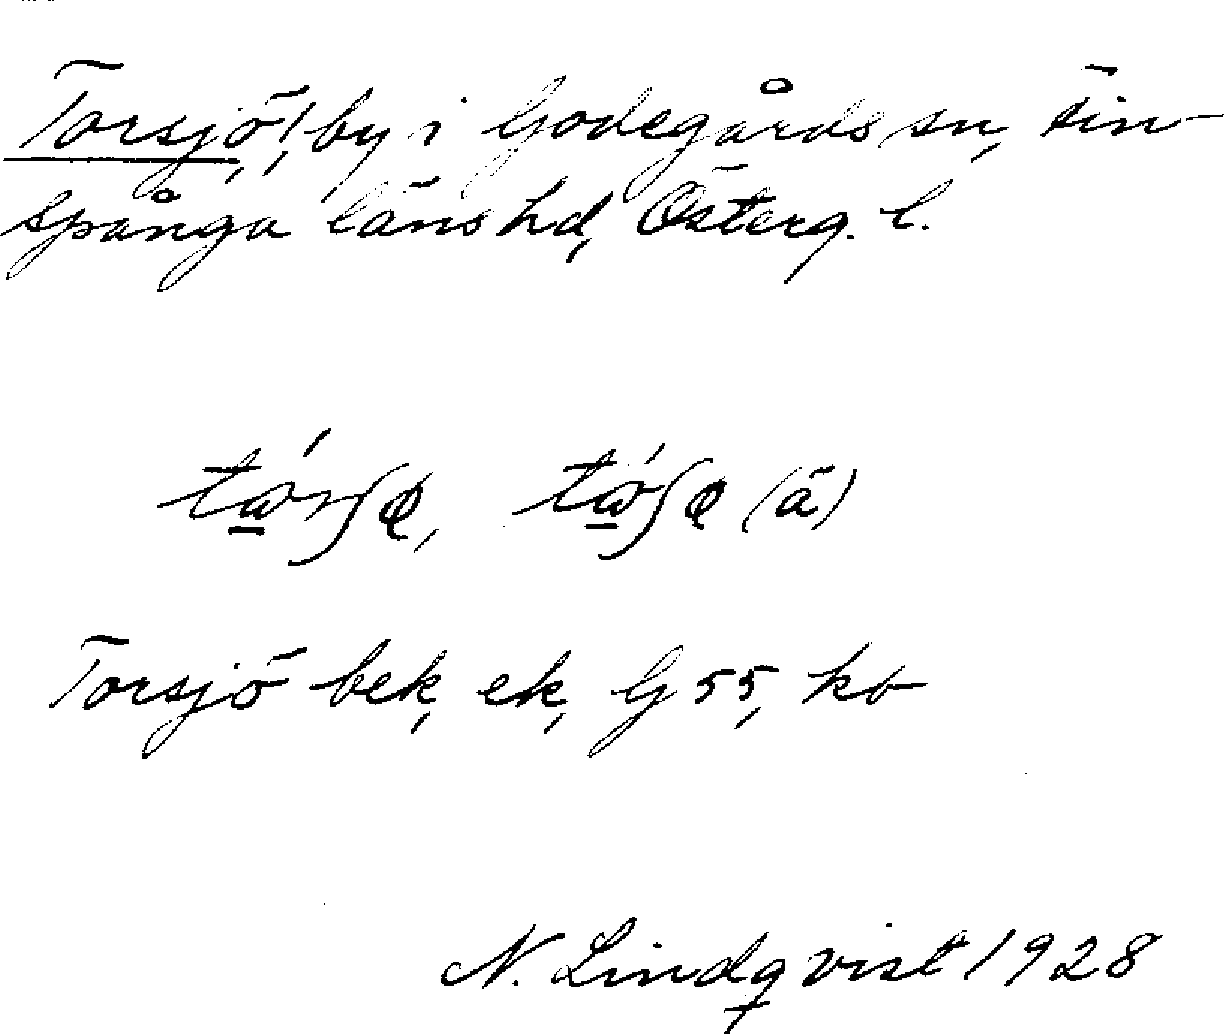 Torsjö!, by i Godegårds sn, Fin-
spånga läns hd, Österg. l.
tώ̲rʃφ, tώ̲ʃφ (ä)
Torsjö bek, ek, G 55, kb
N. Lindqvist 1928